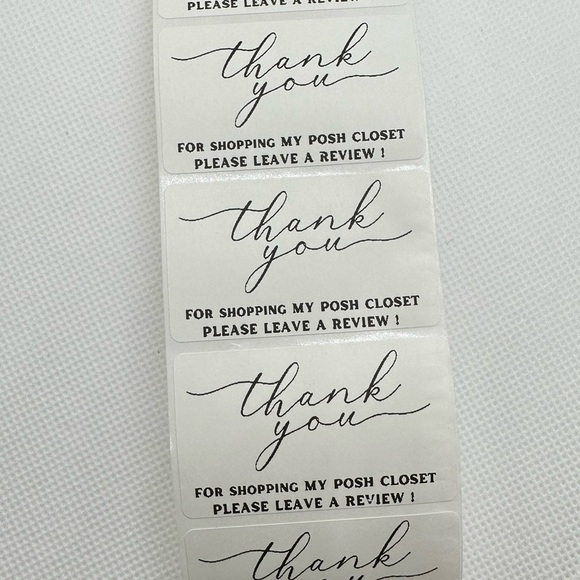 PLEASE LEAVE A REVIEW !
thank
you
FOR SHOPPING MY POSH CLOSET
PLEASE LEAVE A REVIEW !
thank
you
FOR SHOPPING MY POSH CLOSET
PLEASE LEAVE A REVIEW !
thank
you
FOR SHOPPING MY POSH CLOSET
PLEASE LEAVE A REVIEW !
thank
you